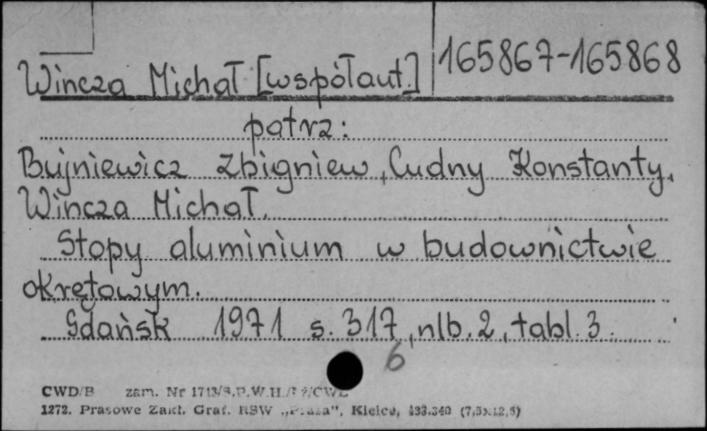 Wincza Michał [współaut.] 165867-165868
patrz:
Bujniewicz Zbigniew, Cudny Konstanty,
Wincza Michał.
Stopy aluminium w budownictwie
okrętowym.
Gdańsk 1971 s. 317, nlb. 2, tabl. 3.
6
CWD/B zam. Nr
1272. Prasowe Zakł. Graf. RSW „Prasa", Kielce,